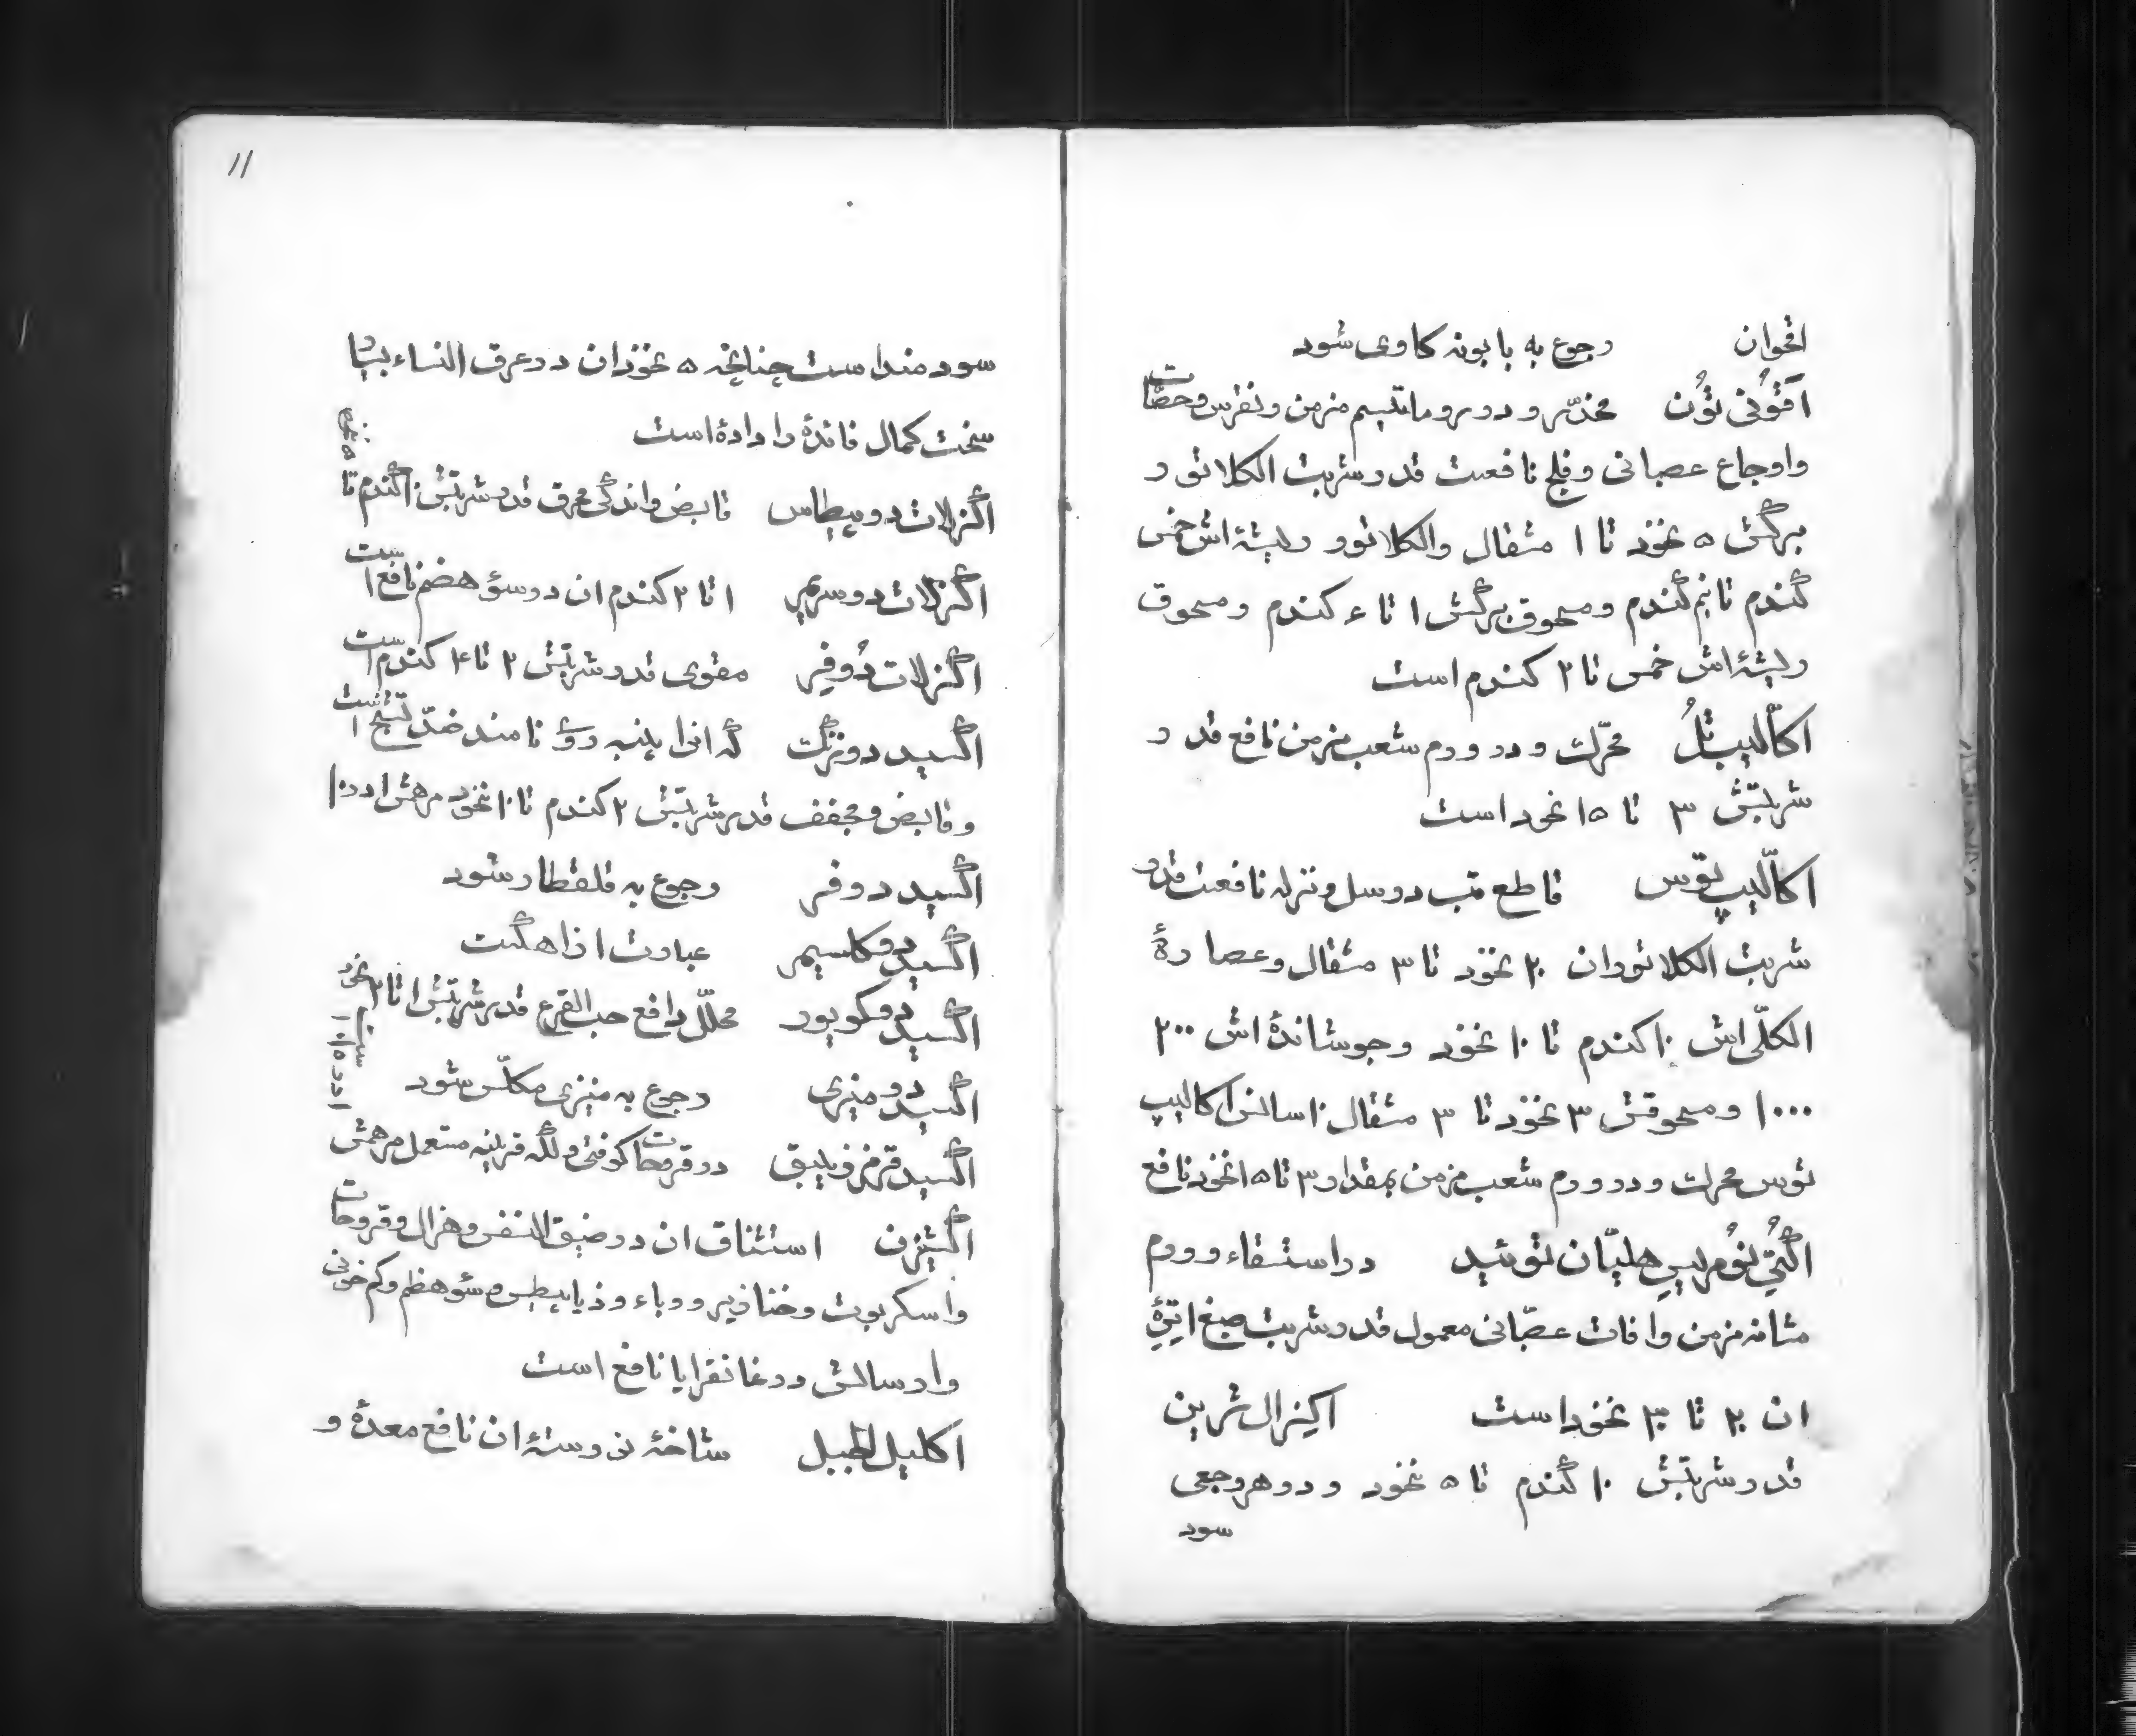 اقحوان رجوع به بابونه کاوی شود
آقونی تون مخدّر و در روماتیسم مزمن و نقرس و حصات
و اوجاع عصبانی و فلج نافعست قدر شربت الکلاتور
برگش ۵ نخود تا ۱ مثقال و الکلاتور ریشهٔ اش خمس
گندم تا نیم گندم و مسحوق برگش ۱ تا ۴ کندم و مسحوق
ریشهٔ اش خمس تا ۲ کندم است
اکالیپتل محرّک و در ورم شعب مزمن نافع قدر
شربتش ۳ تا ۱۵ نخود است
اکالیپتوس قاطع تب در سل و نزله نافعست قدر
شربت الکلاتور ان ۲۰ نخود تا ۳ مثقال و عصارهٔ
الکلّی اش ۱۰ کندم تا ۱۰ نخود و جوشاندهٔ اش ۲۰۰
۱۰۰۰ و مسحوقش ۳ نخود تا ۳ مثقال اسانس اکالیپ
توس محرک و در ورم شعب مزمن بمقدار ۳ تا ۱۵ نخود نافع
هلیان توئید در استسقاء و ورم
مثانه مزمن و افات عصبّانی معمول قدر شربت صبغ اتری
ان ۲۰ تا ۳۰ نخود است اگزال ژین
قدر شربتش ۱۰ گندم تا ۵ نخود و در هر وجعی
سود
۱۱
سودمند است چنانچه ۵ نخود ان در عرق النساء بسیار
سخت کمال فائدهٔ را دادهٔ است
اگزلات دو پطاس قابض و اندکی معرق قدر شربتش ۱ گندم تا
۵ نخود
اگزلات دو سریم ۱ تا ۲ کندم ان در سوٴ هضم نافع است
اگزلات دو فر مقوی قدر شربتش ۲ تا ۴ کندم است
اگسید دو زنگ که انرا پنبه روی نامند ضدّ تشنج است
و قابض و مجفف قدر شربتش ۲ کندم تا ۱۰ نخود مرهمش ۱ در ۱۰
اگسید دو فر رجوع به قلقطار شود
اگسید دو کلسیم عبارت از اهکست
اگسید دو کویور محلّل دافع حب القرع قدر شربتش ۱ تا ۲ نخود
اگسید دو منیزی رجوع به منیزی مکلّس شود
اگسید قرمز زیبق در قروحات کوفتی و لکه قرنیه مستعمل مرهمش
اگسیژن استنشاق ان در ضیق النفس و هزال و قروحات
و اسکربوت و خنازیر و وباء و ذیابیطس و سؤ هظم و کم خونی
و ارسالش در غانقرایا نافع است
اکلیل الجبل شاخهٔ نو رستهٔ ان نافع معدهٔ و